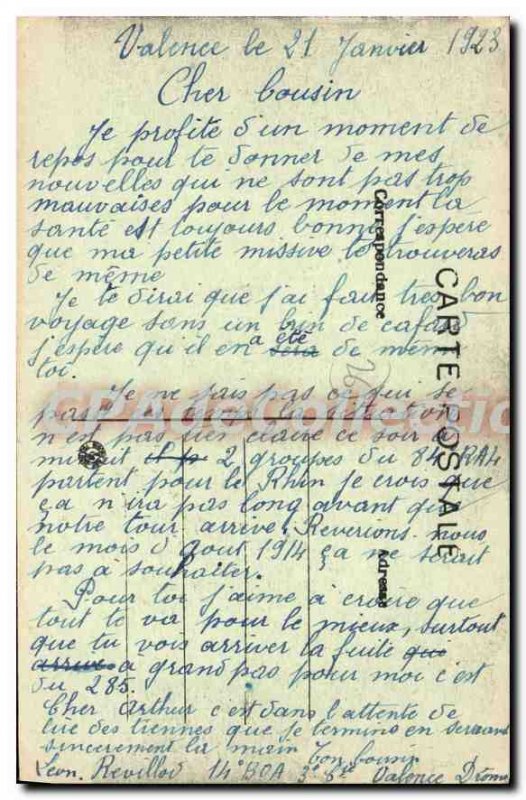 Valence le 21 Janvier 1923
Cher Cousin
Je profite d'un moment de
repos pour te donner de mes
nouvelles qui ne sont pas trop
mauvaises pour le moment la
santé est toujours bonne j'espère
que ma petite missive te trouveras
de même
Je te dirai que j'ai fait tres bon
voyage sans un brin de cafard
j'espère qu'il en a été sera de même
toi.
Je ne sais pas ce qui se
passe la situation
n'est pas tres claire ce soir a
minuit 2 groupes du 84 RA4
partent pour le Rhin je crois que
ça n'ira pas long avant que
notre tour arrive. Reverions nous
le mois d'aout 1914 ça ne serait
pas a souhaiter.
Pour toi j'aime à croire que
tout te va pour le mieux, surtout
que tu vois arriver la fuite qui
arrive a grand pas pour moi c'est
du 285.
Cher Arthur c'est dans l'attente de
lire des tiennes que je termine en serrant
sincerement la main
Ton cousin
Leon. Revillod 14° BOA 3° Valence Drôme
Correspondance
CARTE POSTALE
Adresse
CPAdeCollection